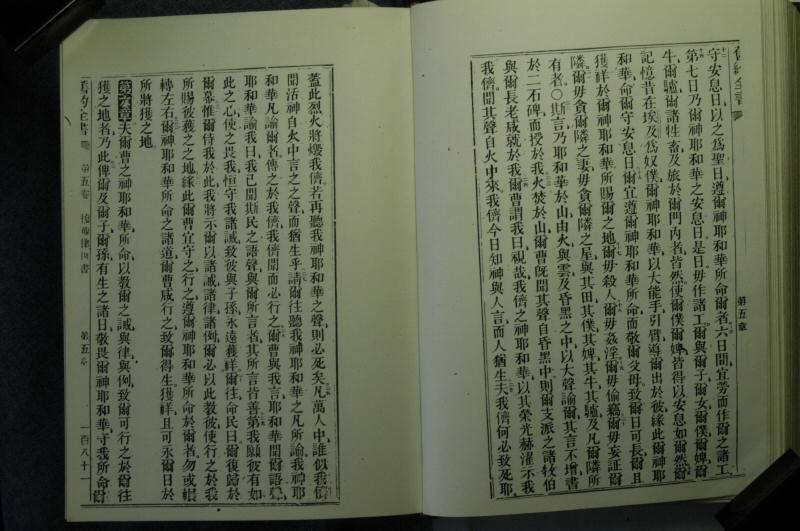 舊約全書
第五章
守安息日以之爲聖日遵爾神耶和華所命爾者六日間宜勞而作爾之諸工
第七日乃爾神耶和華之安息日是日毋作諸工爾與爾子爾女爾僕爾婢爾
牛爾驢爾諸牲畜及旅於爾門內者皆然使爾僕爾婢皆得以安息如爾然爾
記憶昔在埃及爲奴僕爾神耶和華以大能手引臂導爾出於彼緣此爾神耶
和華命爾守安息日爾宜遵爾神耶和華所命而敬爾父母致爾日可長爾且
獲祥於爾神耶和華所賜爾之地爾毋殺人爾毋姦淫爾毋偷竊爾毋妄証爾
隣爾毋貪爾隣之妻毋貪爾隣之屋與其田其僕其婢其牛其驢及凡爾隣所
有者〇斯言乃耶和華於山由火與雲及昏黑之中以大聲諭爾其言不增書
於二石碑而授於我火焚於山爾曹既聞其聲自昏黑中則爾支派之諸牧伯
與爾長老咸就於我爾曹謂我曰視哉我儕之神耶和華以其榮光赫濯示我
我儕聞其聲自火中來我儕今日知神與人言而人猶生夫我儕何必致死耶
蓋此烈火將燬我儕若再聽我神耶和華之聲則必死矣凡萬人中誰似我儕
聞活神自火中言之之聲而猶生乎請爾往聽我神耶和華之凡所諭我神耶
和華凡諭爾者傳之於我儕我儕聞而必行之爾曹與我言耶和華聞爾語聲
耶和華諭我曰我已聞斯民之語聲與爾所言者其所言皆善第我願彼有如
此之心使之畏我恒守我諸誡致彼與子孫永遠獲祥爾往命民曰爾復歸於
爾幕惟爾侍我於此我將示爾以諸誡諸律諸例爾必以此教彼使行之於我
所賜彼獲之之地緣此爾曹宜守之行之遵爾神耶和華所命於爾者勿或輾
轉左右爾神耶和華所命之諸道爾曹咸行之致爾得生獲祥且可永爾日於
所將獲之地
第六章夫爾曹之神耶和華所命以教爾之誡與律與例致爾可行之於爾往
獲之地者乃此俾爾及爾子爾孫有生之諸日敬畏爾神耶和華守我所命爾
舊約全書
第五卷
第五章
一百八十一